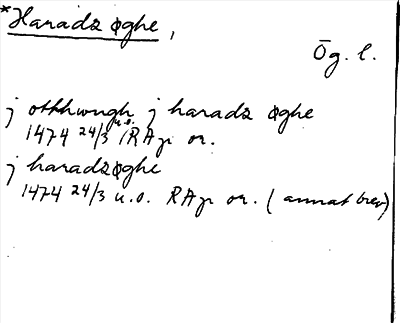 *Haradz øghe,
Ög. l.
j otthwngh j haradz øghe
1474 24/3 u.o. RAp or.
j haradzøghe
1474 24/3 u.o. RAp or. (annat brev)